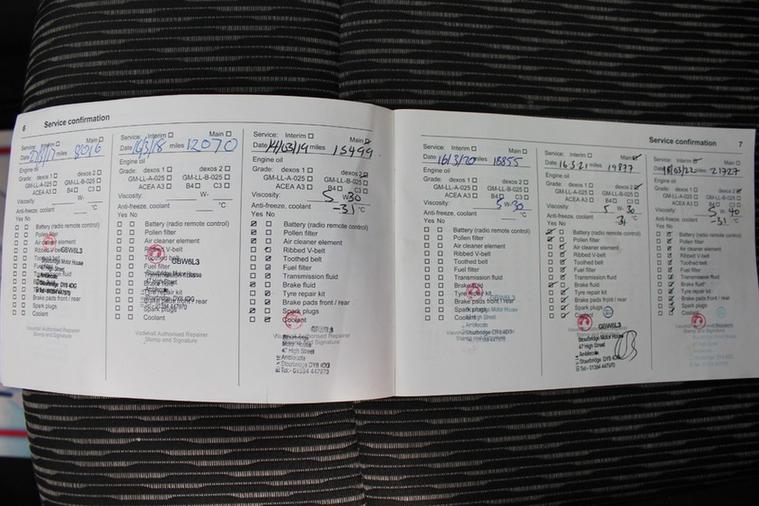 6
Service confirmation
Service: Interim Main
Date miles 8016
Engine oil
Grade: dexos 1 dexos 2
GM-LL-A-025 GM-LL-B-025
ACEA A3 B4 C3
Viscosity: W-
Anti-freeze, coolant °C
Yes No
Battery (radio remote control)
Pollen filter
Air cleaner element
Vauxhall Authorised Repairer
Stamp and Signature
Service: Interim Main
Date miles 12070
Engine oil
Grade: dexos 1 dexos 2
GM-LL-A-025 GM-LL-B-025
ACEA A3 B4 C3
Viscosity: W-
Anti-freeze, coolant °C
Yes No
Battery (radio remote control)
Pollen filter
Air cleaner element
Ribbed V-belt
Toothed belt
Fuel filter
Brake pads front / rear
Spark plugs
Coolant
Vauxhall Authorised Repairer
Stamp and Signature
Service: Interim Main
Date 14/03/19 miles 15499
Engine oil
Grade: dexos 1 dexos 2
GM-LL-A-025 GM-LL-B-025
ACEA A3 B4 C3
Viscosity: 5 W-30
Anti-freeze, coolant -31 °C
Yes No
Battery (radio remote control)
Pollen filter
Air cleaner element
Ribbed V-belt
Toothed belt
Fuel filter
Transmission fluid
Brake fluid
Tyre repair kit
Brake pads front / rear
Spark plugs
Coolant
Motor House
47 High Street
Amblecote
Stourbridge DY8 4DG
Tel:- 01384 447970
Service confirmation 7
Service: Interim Main
Date 16/3/20 miles 15855
Engine oil
Grade: dexos 1 dexos 2
GM-LL-A-025 GM-LL-B-025
ACEA A3 B4 C3
Viscosity: 5 W-30
Anti-freeze, coolant °C
Yes No
Battery (radio remote control)
Pollen filter
Air cleaner element
Ribbed V-belt
Toothed belt
Fuel filter
Transmission fluid
Brake fluid
Tyre repair kit
Brake pads front / rear
Spark plugs
Coolant
Service: Interim Main
Date 16.3.21 miles 19877
Engine oil
Grade: dexos 1 dexos 2
GM-LL-A-025 GM-LL-B-025
ACEA A3 B4 C3
Viscosity: 5 W-30
Anti-freeze, coolant °C
Yes No
Battery (radio remote control)
Pollen filter
Air cleaner element
Ribbed V-belt
Toothed belt
Fuel filter
Transmission fluid
Brake fluid
Tyre repair kit
Brake pads front / rear
Spark plugs
Coolant
GBW6L3
Stourbridge Motor House
47 High Street
Amblecote
Stourbridge DY8 4DG
Tel:- 01384 447970
Service: Interim Main
Date 18/03/22 miles 21727
Engine oil
Grade: dexos 1 dexos 2
GM-LL-A-025 GM-LL-B-025
ACEA A3 B4 C3
Viscosity: 5 W-40
Anti-freeze, coolant -31 °C
Yes No
Battery (radio remote control)
Pollen filter
Air cleaner element
Ribbed V-belt
Toothed belt
Fuel filter
Transmission fluid
Brake fluid
Tyre repair kit
Brake pads front / rear
Spark plugs
Coolant